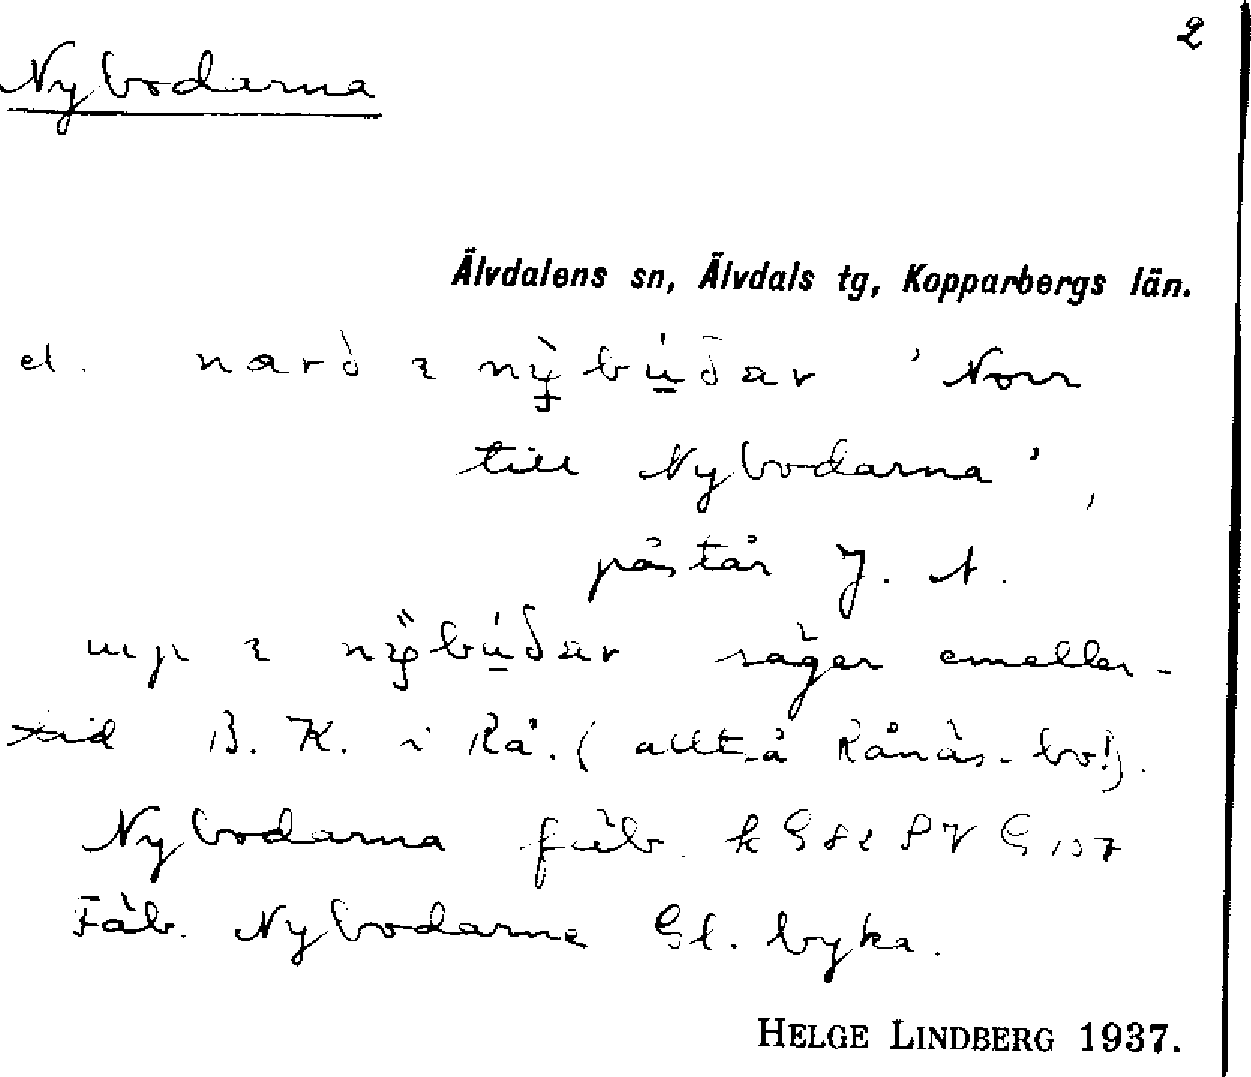 2
Nybodarna
Älvdalens sn, Älvdals tg, Kopparbergs län.
el. nard ı nỳbúðar 'Norr
till Nybodarna',
påstår J. A.
upı ı nÿbúðar säger emeller-
tid B. K. i Rå. (alltså Rånäs-bo!).
Nybodarna fäb. k G 82 S V G 137
Fäb. Nybodarne Gl. byka.
HELGE LINDBERG 1937.